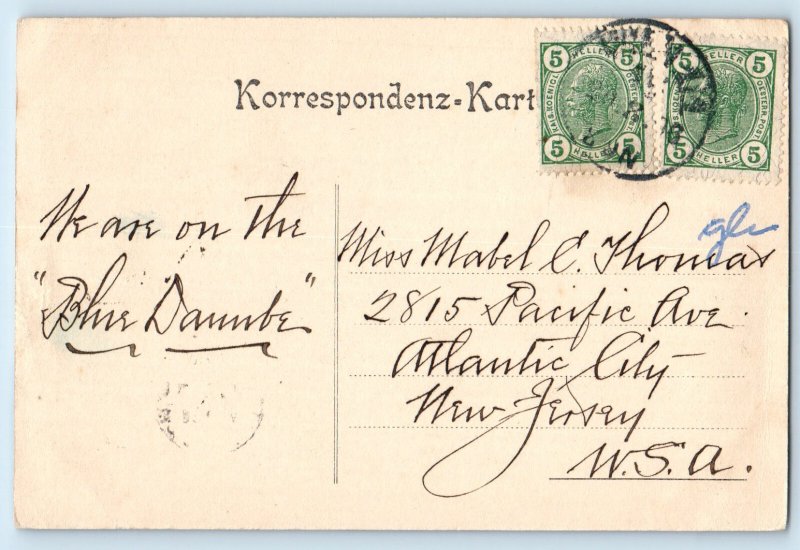 Korrespondenz-Kart
5 HELLER 5
KAIS. KOENIGL. OESTERR. POST
5 HELLER 5
5 HELLER 5
OESTERR. POST
5 HELLER 5
We are on the
"Blue Danube"
Miss Mabel E. Thomas
2815 Pacific Ave.
Atlantic City
New Jersey
U.S.A.